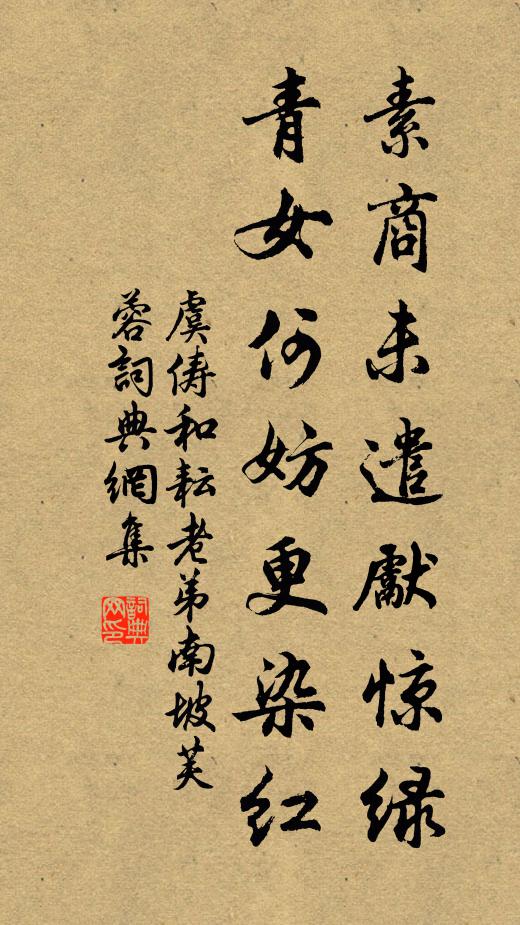 素商未遣獻惊绿
青女何妨更染红
虞俦和耘老弟南坡芙
蓉詞典網集
詞典网印